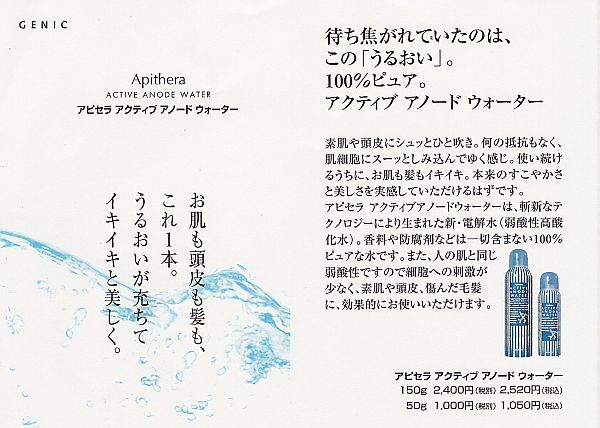 GENIC
Apithera
ACTIVE ANODE WATER
アピセラ アクティブ アノード ウォーター
お肌も頭皮も髪も、
これ1本。
うるおいが充ちて
イキイキと美しく。
待ち焦がれていたのは、
この「うるおい」。
100%ピュア。
アクティブ アノード ウォーター
素肌や頭皮にシュッとひと吹き。何の抵抗もなく、
肌細胞にスーッとしみ込んでゆく感じ。使い続け
るうちに、お肌も髪もイキイキ。本来のすこやかさ
と美しさを実感していただけるはずです。
アピセラ アクティブアノードウォーターは、斬新なテ
クノロジーにより生まれた新・電解水(弱酸性高酸
化水)。香料や防腐剤などは一切含まない100%
ピュアな水です。また、人の肌と同じ
弱酸性ですので細胞への刺激が
少なく、素肌や頭皮、傷んだ毛髪
に、効果的にお使いいただけます。
アピセラ アクティブ アノード ウォーター
150g 2,400円(税別) 2,520円(税込)
50g 1,000円(税別) 1,050円(税込)